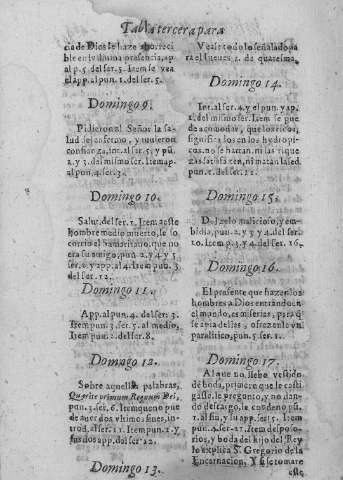 Tabla tercera para
cia de Dios le haze aborreci
ble en su divina presencia, ap
al p. 5. del ser. 5. Item se vea
el app. al pun. 1. del ser. 5.
Domingo 9.
Pidieron al Señor la sa-
lud de enfermo, y tuvieron
confianza, Int. al ser. 5. y pũ.
2. y 3. del mismo ser. Item ap.
al pun, 4. ser. 3.
Domingo 10.
Salut. del ser. 1. Item a este
hombre medio muerto, le so
corrio el Samaritano, que no
era su amigo, pun. 2. y 4. y 5
ser. 2. y app. al 4. Item pun. 3.
del ser. 12.
Domingo 11.
App. al pun. 4. del ser: 3.
Item pun. 3. ser. 5. al medio,
Item pun. 2. del ser. 8.
Domingo 12.
Sobre aquellas palabras,
Quærite primum Regnum Dei,
pun. 3. ser. 6. Item que no pue
de aver dos vltimos fines, in-
trod. del ser. 6. Item pun. 2. y
sus dos app. del ser 12.
Domingo 13.
Vease todo lo señalado pa
ra el Iueves 2. de quaresma.
Domingo 14.
Int. al ser. 4. y el pun. y ap.
1. del mismo ser. Item se pue
de acomodar, que los ricos,
significados en los hydropi
cos no se hartan, ni las rique
zas satisfazen, ni matan la sed.
pun. 1. del ser. 12.
Domingo 15.
Del zelo malicioso, y en-
bidia, pun. 2. y 3. y 4. del ser.
10. Item p. 3. y 4. del ser. 16.
Domingo 16.
El presente que hazen los
hombres a Dios entrãndo en
el mundo, es miserias, para q̃
se apiade los, ofrezcanle vn
paralitico, pun. 5. ser. 1.
Domingo 17.
Al que no llebe vestido
de boda, primero que le casti
gasse, le pregonto, y no dan-
do descargo, le condeno pũ.
2. al fin, y su app. ser. 5. Item
pun. 4. ser. 17. Item desposo-
rios, y boda del hijo del Rey
lo explica S. Gregorio de la
Encarnacion, Y si se tomare
este